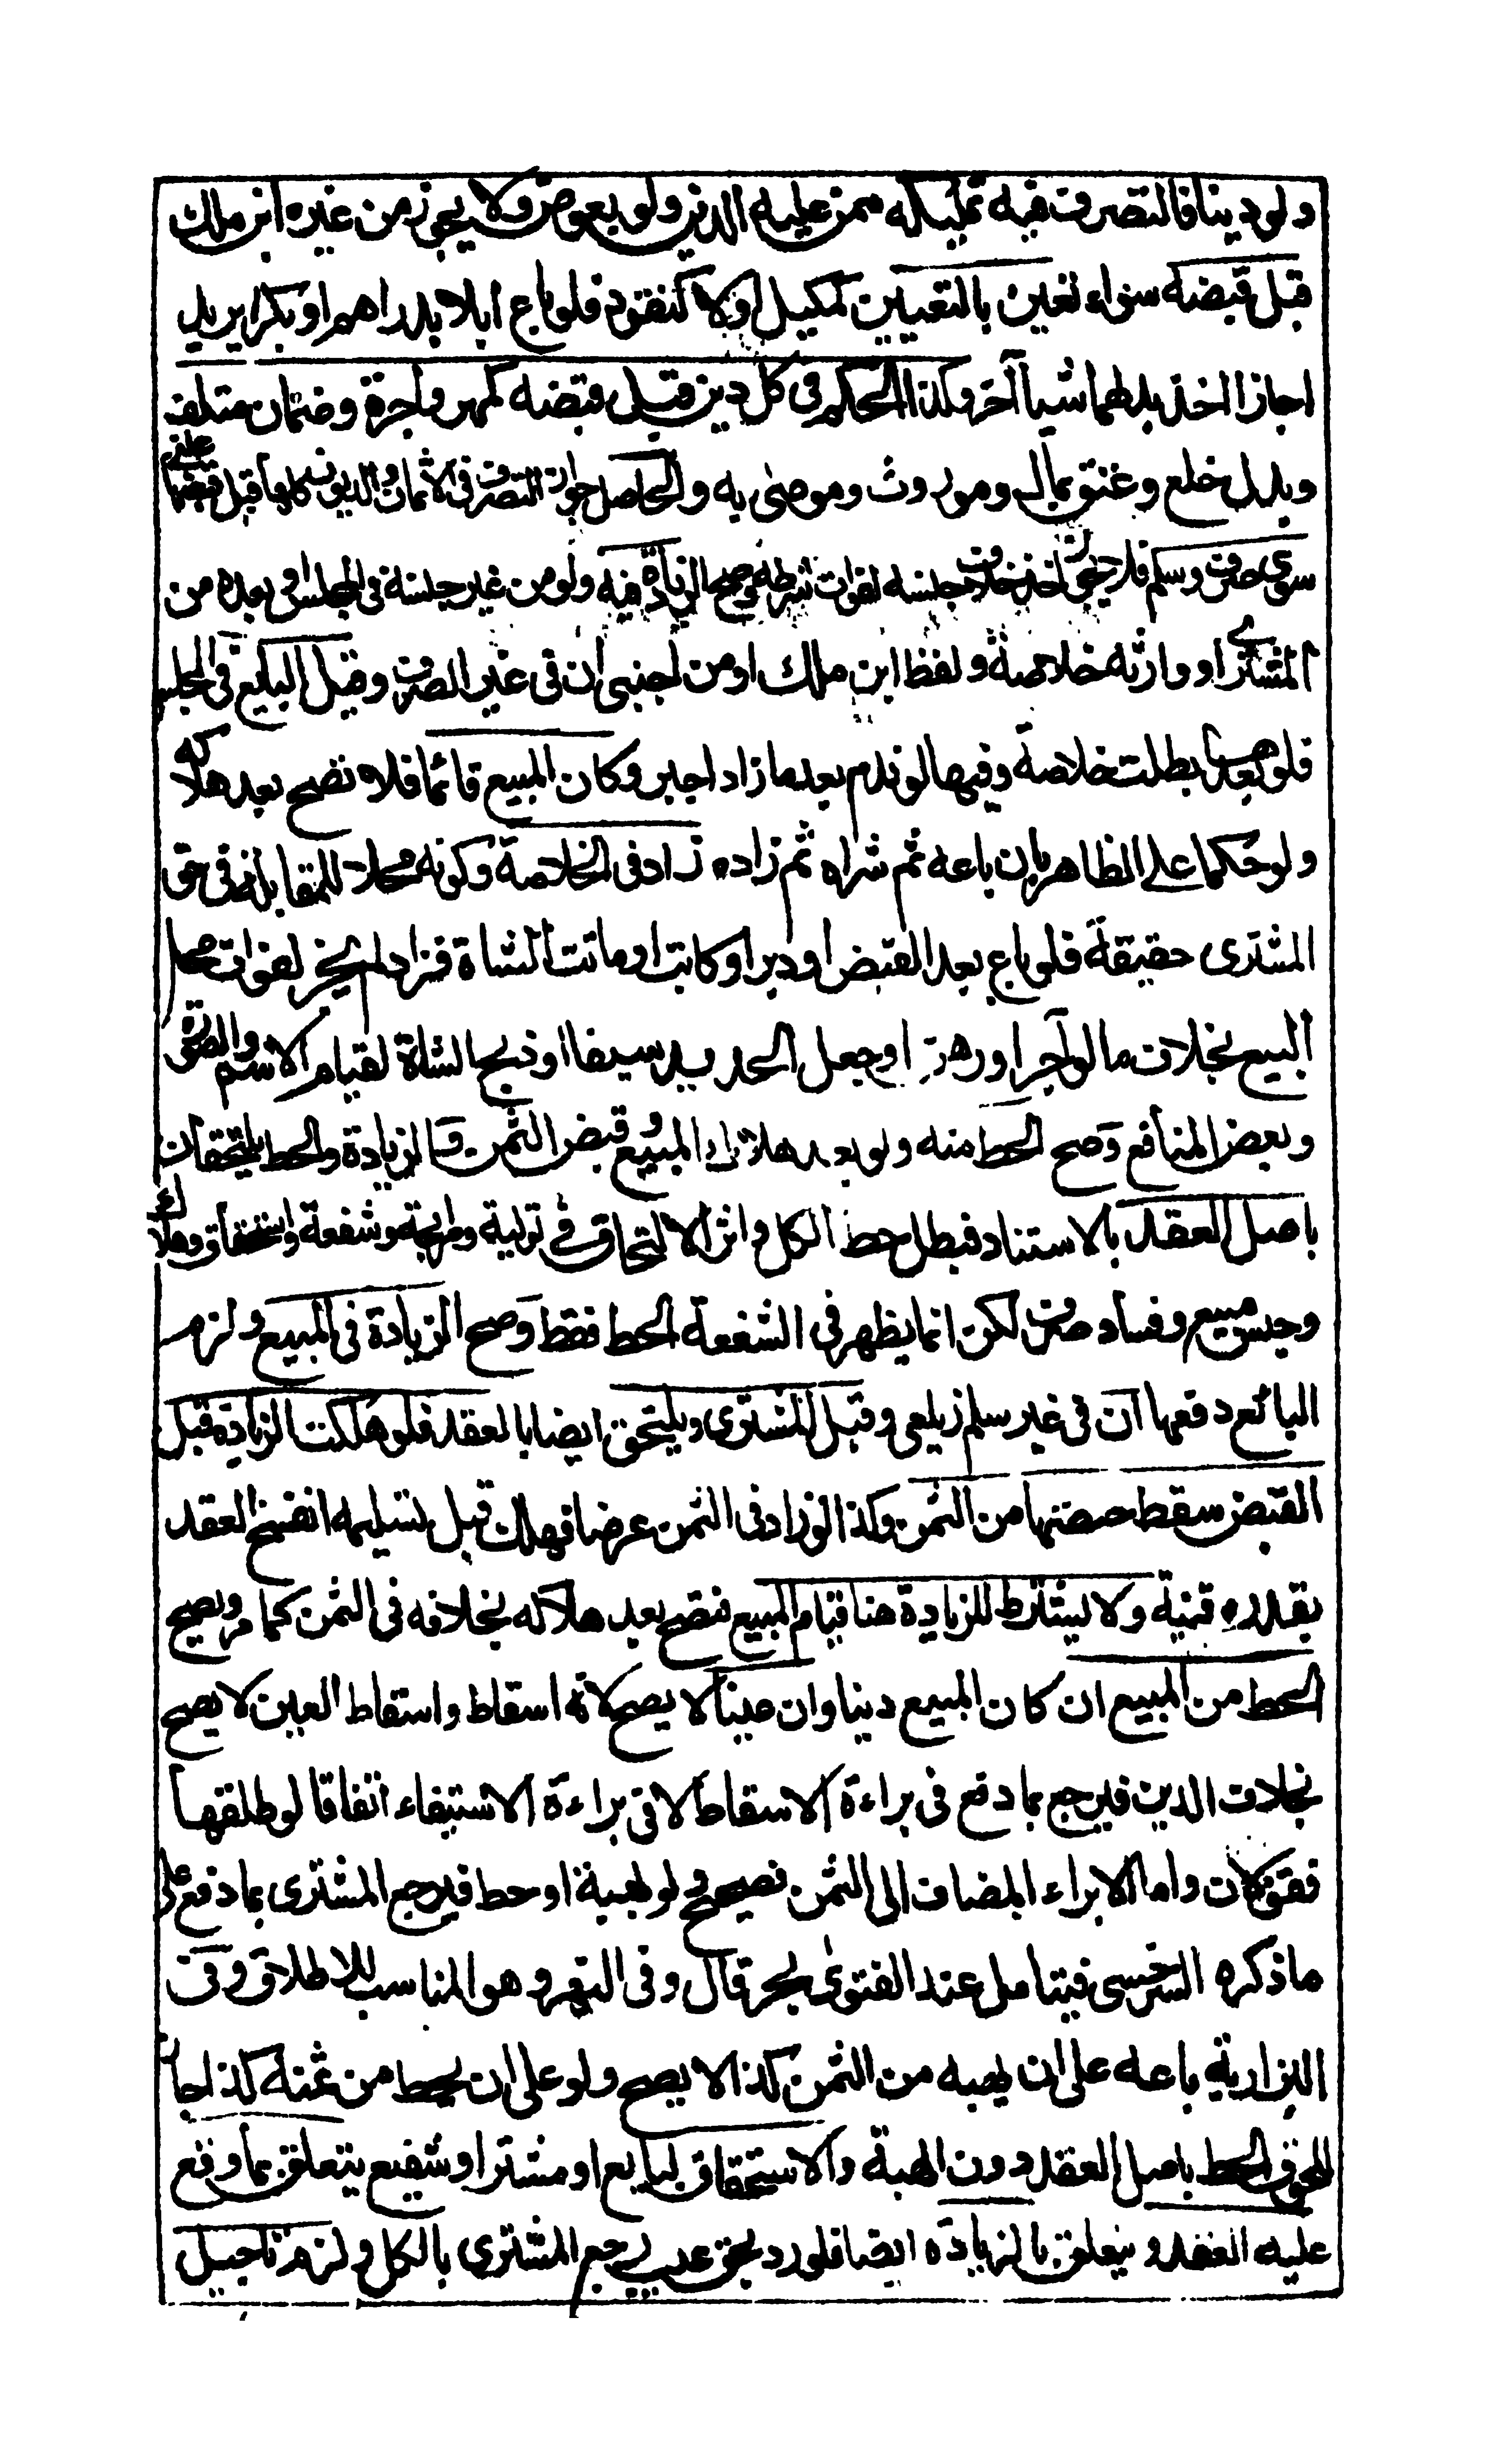 ولو دينا فالتصرف فيه تمليكه ممن عليه الدين ولو بعوض ولا يجوز من غيره ابن ملك
قبل قبضه سواء تعين بالتعيين كمكيل اولا كنقود فلو باع ابلا بدراهم او بكر ابر بل
اجاز اخذ بدلهما شيأ آخر وكذا الحكم في كل دين قبل قبضه كمهر واجرة وضمان متلف
وبدل خلع وعتق بمال وموروث وموصى به والحاصل جواز التصرف في الاثمان والديون كلها قبل قبضها عيني
سوى صرف وسلم فلا يجوز اخذ خلاف جنسه لفوات شرطه وصح الزيادة فيه ولو من غير جنسه في المجلس او بعده من
المشتري او وارثه خلاصة ولفظ ابن ملك او من اجنبي ان في غير الصرف وقبل البايع في المجلس
فلو بعده بطلت خلاصة وفيها لو ندم بعد ما زاد اجبر وكان المبيع قائما فلا تصح بعد هلاكه
ولو حكما على الظاهر بان باعه ثم شراه ثم زاده زاد في الخلاصة وكونه محلا للمقابلة في حق
المشترى حقيقة فلو باع بعد القبض او دبر او كاتب او ماتت الشاة فزاد لم يجز لفوات محل
البيع بخلاف ما لو آجر او رهن او جعل الحديد سيفا او ذبح الشاة لقيام الاسم والصورة
وبعض المنافع وصح الحط منه ولو بعد هلاك المبيع وقبض الثمن والزيادة والحط يلتحقان
باصل العقد بالاستناد فبطل حط الكل واثر الالتحاق في تولية ومرابحة وشفعة واستحقاق وهلاك
وحبس مبيع وفساد صرف لكن انما يظهر في الشفعة الحط فقط وصح الزيادة في المبيع ولزم
البائع دفعها ان في غير سلم زيلعي وقبل المشترى ويلتحق ايضا بالعقد فلو هلكت الزيادة قبل
القبض سقط حصتها من الثمن وكذا لو زاد في الثمن عرضا فهلك قبل تسليمه انفسخ العقد
بقدره قنية ولا يشترط للزيادة هنا قيام المبيع فتصح بعد هلاكه بخلافه في الثمن كما مر ويصح
الحط من المبيع ان كان المبيع دينا وان عينا لا يصح لانه اسقاط واسقاط العين لا يصح
بخلاف الدين فيرجع بما دفع في براءة الاسقاط لا في براءة الاستيفاء اتفاقا لو طلقها
فقولان واما الابراء المضاف الى الثمن فصحيح ولو بهبة او حط فيرجع المشترى بما دفع على
ما ذكره السرخسي فيتامل عند الفتوى بحر قال وفي النهر وهو المناسب للاطلاق وفي
البزازية باعه على ان يهبه من الثمن كذا لا يصح ولو على ان يحط من ثمنه كذا جاز
للحوق الحط باصل العقد دون الهبة والاستحقاق لبايع او مشتر او شفيع يتعلق بما وقع
عليه العقد ويتعلق بالزيادة ايضا فلو رد بنحو عيب يرجع المشترى بالكل ولزم تاجيل